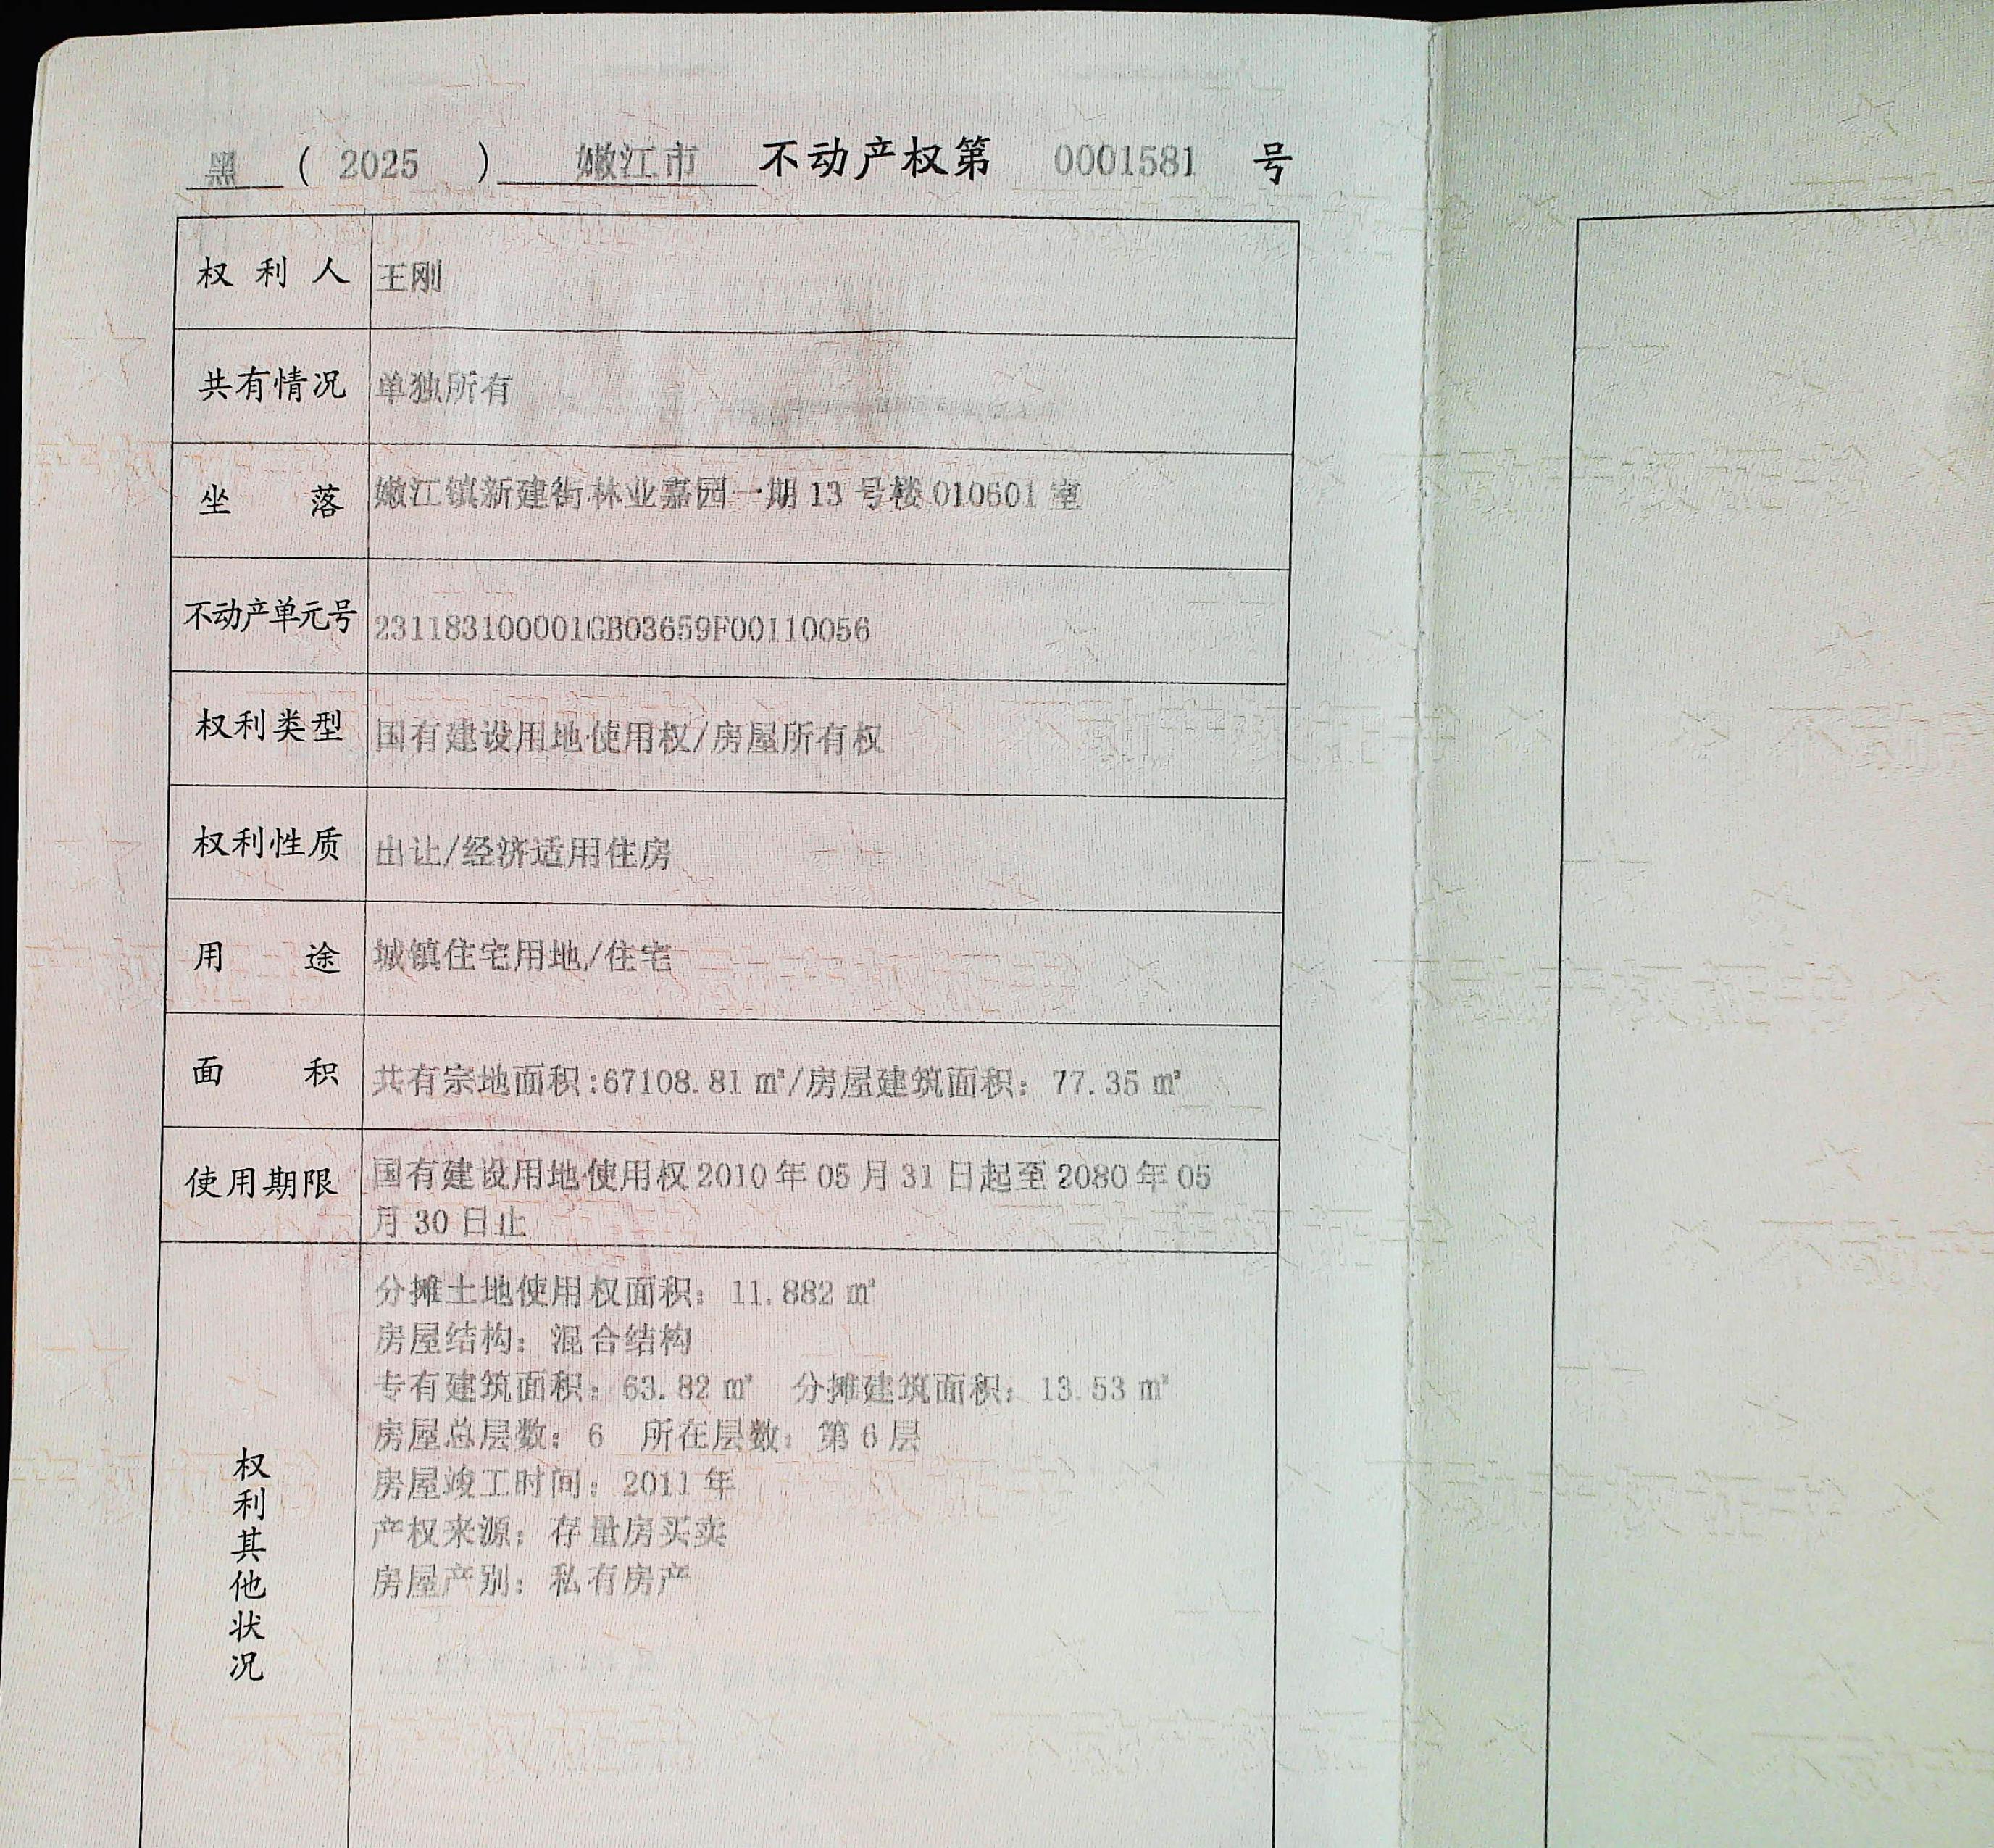 黑 ( 2025 ) 嫩江市 不动产权第 0001581 号
权利人 王刚
共有情况 单独所有
坐落 嫩江镇新建街林业嘉园一期 13 号楼 010601 室
不动产单元号 231183100001GB03659F00110056
权利类型 国有建设用地使用权/房屋所有权
权利性质 出让/经济适用住房
用途 城镇住宅用地/住宅
面积 共有宗地面积:67108.81 ㎡/房屋建筑面积：77.35 ㎡
使用期限 国有建设用地使用权 2010 年 05 月 31 日起至 2080 年 05
月 30 日止
权利其他状况
分摊土地使用权面积：11.882 ㎡
房屋结构：混合结构
专有建筑面积：63.82 ㎡ 分摊建筑面积：13.53 ㎡
房屋总层数：6 所在层数：第 6 层
房屋竣工时间：2011 年
产权来源：存量房买卖
房屋产别：私有房产